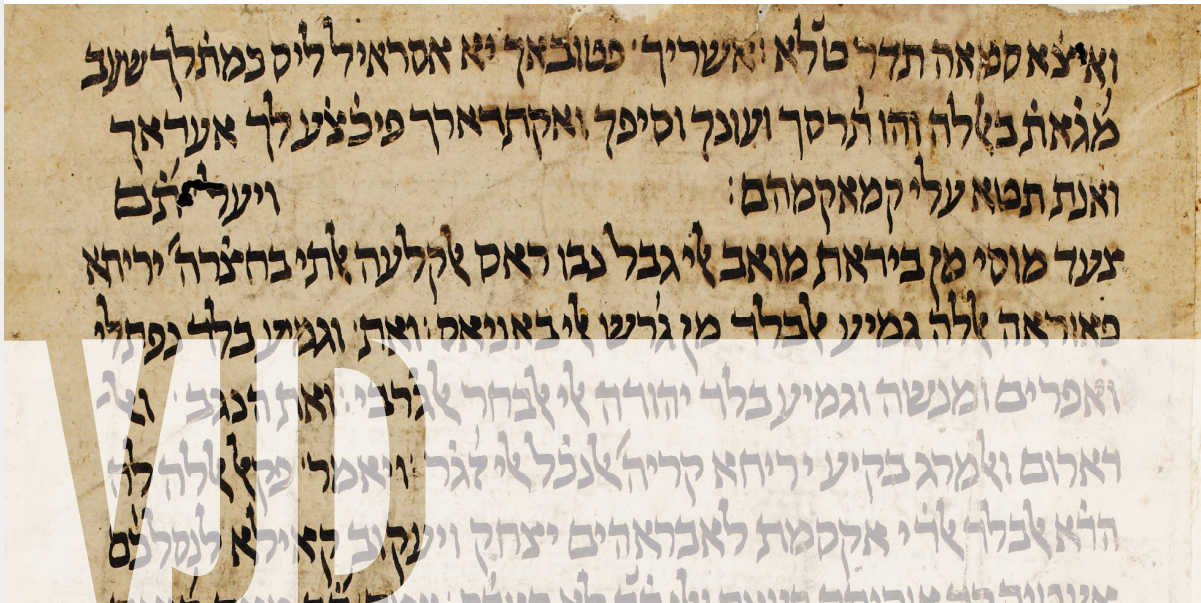 ואיצ̇א סמאה תדר טלא : אשריך פטובאך יא אסראיל ליס כמת̇לך שעב
מג̇את̇ בﭏלה והו תרסך ועונך וסיפך ואקתדארך פיכ̇צ̇ע לך אעדאך
ואנת תטא עלי קמאקמהם :
צעד מוסי מן ביראת מואב ﭏי גבל נבו ראס ﭏקלעה ﭏתי בחצ̇רה יריחא
פאוראה ﭏלה גמיע ﭏבלד מן גרשו ﭏי באניאס ואת וגמיע בלד נפתלי
ואפרים ומנשה וגמיע בלד יהודה ﭏי ﭏבחר ﭏגרבי ואת הנגב וﭏ
דארום וﭏמרג בקיע יריחא קריה ﭏנכ̇ל ﭏי זגר ויאמר פקﭏ ﭏלה לה
הד̇א ﭏבלד ﭏד̇י אקסמת לאבראהים יצחק ויעקוב קאילא לנסלכם
VJD